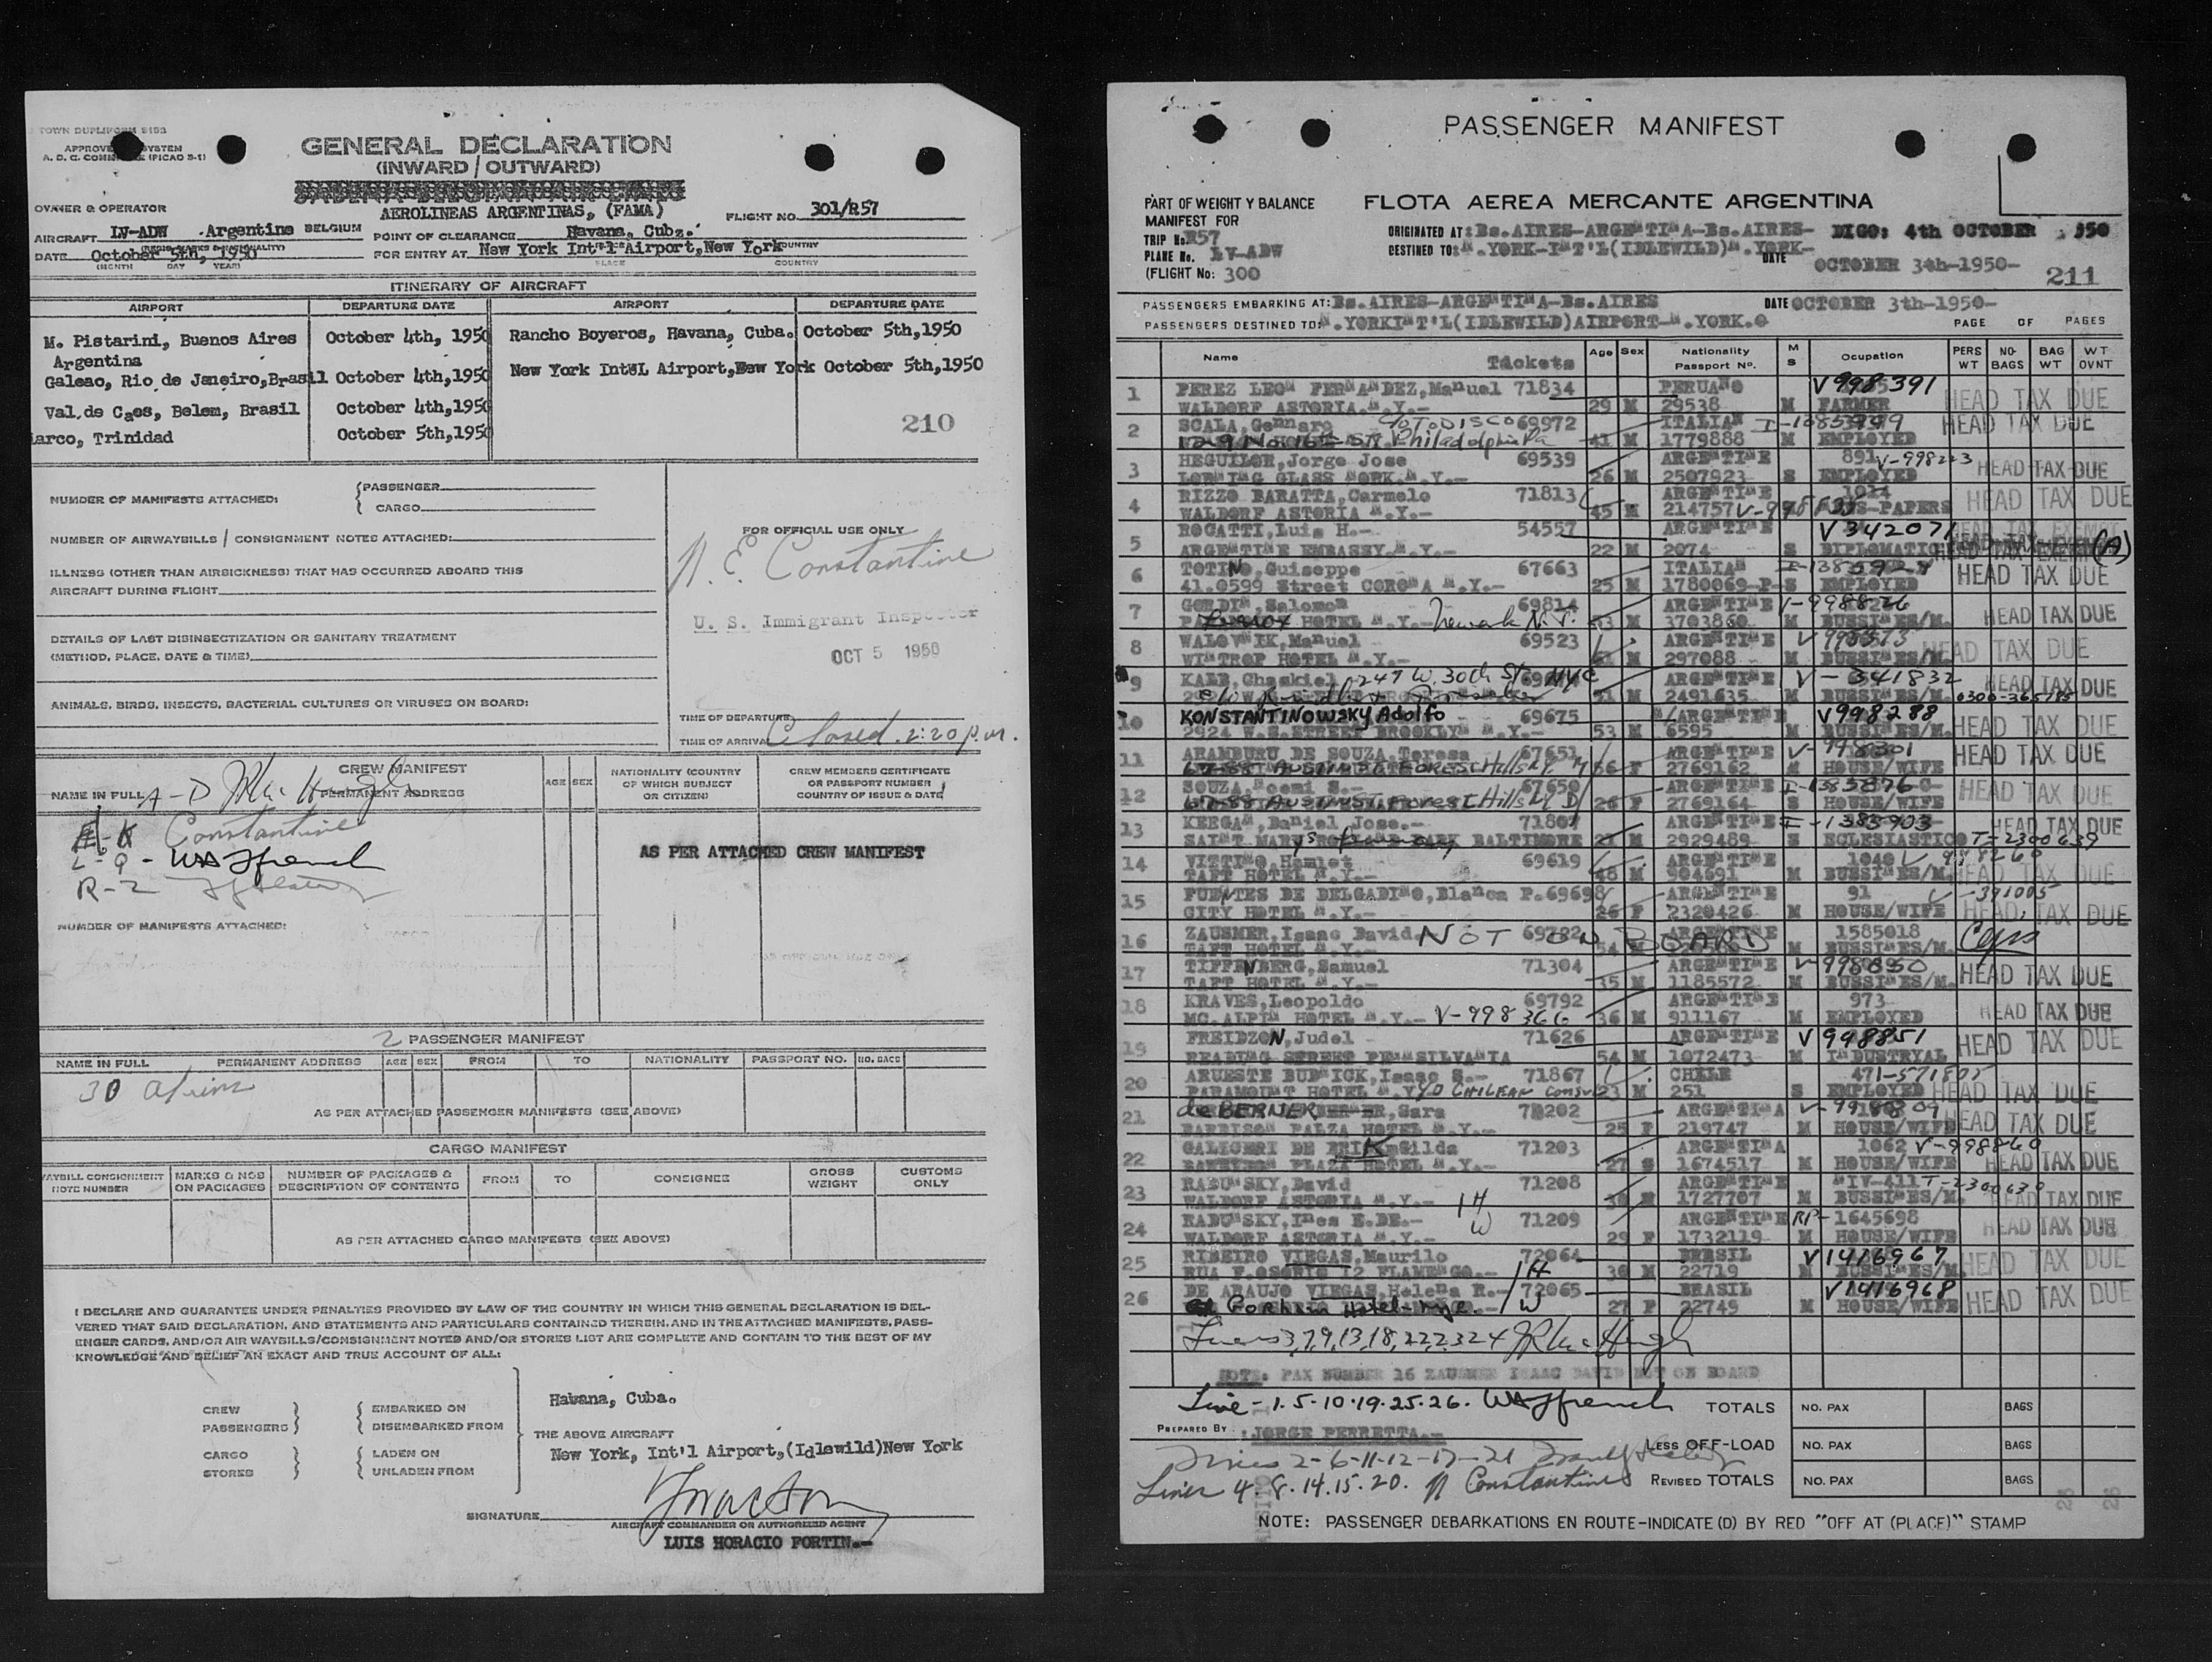 TOWN DUPLIFORM 5153
APPROVED SYSTEM
A. D. C. COMMITTEE (PICAO B-1)
GENERAL DECLARATION
(INWARD / OUTWARD)
OWNER & OPERATOR
AEROLINEAS ARGENTINAS, (FAMA)
FLIGHT NO. 301/R57
AIRCRAFT LV-ADW Argentina BELGIUM
POINT OF CLEARANCE Havana, Cuba.
DATE October 5th, 1950
(MONTH DAY YEAR)
FOR ENTRY AT New York Int'l Airport, New York
PLACE COUNTRY
ITINERARY OF AIRCRAFT
AIRPORT DEPARTURE DATE AIRPORT DEPARTURE DATE
M. Pistarini, Buenos Aires October 4th, 1950 Rancho Boyeros, Havana, Cuba. October 5th, 1950
Argentina
Galeao, Rio de Janeiro, Brasil October 4th, 1950 New York Int'L Airport, New York October 5th, 1950
Val de Caes, Belem, Brasil October 4th, 1950
arco, Trinidad October 5th, 1950
210
NUMBER OF MANIFESTS ATTACHED: PASSENGER
CARGO
NUMBER OF AIRWAYBILLS / CONSIGNMENT NOTES ATTACHED:
ILLNESS (OTHER THAN AIRSICKNESS) THAT HAS OCCURRED ABOARD THIS
AIRCRAFT DURING FLIGHT
DETAILS OF LAST DISINSECTIZATION OR SANITARY TREATMENT
(METHOD, PLACE, DATE & TIME)
ANIMALS, BIRDS, INSECTS, BACTERIAL CULTURES OR VIRUSES ON BOARD:
FOR OFFICIAL USE ONLY
N. E. Constantine
U. S. Immigrant Inspector
OCT 5 1950
TIME OF DEPARTURE
TIME OF ARRIVAL Closed 2:20 p.m.
CREW MANIFEST
NAME IN FULL PERMANENT ADDRESS AGE SEX NATIONALITY (COUNTRY OF WHICH SUBJECT OR CITIZEN) CREW MEMBERS CERTIFICATE OR PASSPORT NUMBER COUNTRY OF ISSUE & DATE
A-D JR McHugh
E-K Constantine
L-Q - WA Ffrench
R-Z
AS PER ATTACHED CREW MANIFEST
NUMBER OF MANIFESTS ATTACHED:
2 PASSENGER MANIFEST
NAME IN FULL PERMANENT ADDRESS AGE SEX FROM TO NATIONALITY PASSPORT NO. NO. BAGS
30 aliens
AS PER ATTACHED PASSENGER MANIFESTS (SEE ABOVE)
CARGO MANIFEST
WAYBILL CONSIGNMENT NOTE NUMBER MARKS & NOS ON PACKAGES NUMBER OF PACKAGES & DESCRIPTION OF CONTENTS FROM TO CONSIGNEE GROSS WEIGHT CUSTOMS ONLY
AS PER ATTACHED CARGO MANIFESTS (SEE ABOVE)
I DECLARE AND GUARANTEE UNDER PENALTIES PROVIDED BY LAW OF THE COUNTRY IN WHICH THIS GENERAL DECLARATION IS DEL-
VERED THAT SAID DECLARATION, AND STATEMENTS AND PARTICULARS CONTAINED THEREIN, AND IN THE ATTACHED MANIFESTS, PASS-
ENGER CARDS, AND/OR AIR WAYBILLS/CONSIGNMENT NOTES AND/OR STORES LIST ARE COMPLETE AND CONTAIN TO THE BEST OF MY
KNOWLEDGE AND BELIEF AN EXACT AND TRUE ACCOUNT OF ALL:
CREW EMBARKED ON Havana, Cuba.
PASSENGERS DISEMBARKED FROM
THE ABOVE AIRCRAFT
CARGO LADEN ON New York, Int'l Airport, (Idlewild) New York
STORES UNLADEN FROM
SIGNATURE
AIRCRAFT COMMANDER OR AUTHORIZED AGENT
LUIS HORACIO FORTIN.-
PASSENGER MANIFEST
PART OF WEIGHT Y BALANCE
MANIFEST FOR
FLOTA AEREA MERCANTE ARGENTINA
TRIP No. R57
PLANE No. LV-ADW
(FLIGHT No: 300
ORIGINATED AT: Bs. AIRES-ARGENTINA-Bs. AIRES- DIGO: 4th OCTOBER 950
DESTINED TO: N. YORK-INT'L (IDLEWILD) N. YORK-
DATE OCTOBER 3th-1950-
211
PASSENGERS EMBARKING AT: Bs. AIRES-ARGENTINA-Bs. AIRES DATE OCTOBER 3th-1950-
PASSENGERS DESTINED TO: N. YORK INT'L (IDLEWILD) AIRPORT-N. YORK.
PAGE OF PAGES
Name Tickets Age Sex Nationality Passport No. M S Ocupation PERS WT NO- BAGS BAG WT WT OVNT
1 PEREZ LEON FERNANDEZ, Manuel 71834 PERUANO V998391
WALDORF ASTORIA N.Y.- 29 M 29538 M FARMER HEAD TAX DUE
2 SCALA, Gennaro 69972 ITALIAN I-1385999
1229 No. 16 St Philadelphia Pa 41 M 1779888 M EMPLOYED HEAD TAX DUE
3 HEGUILOR, Jorge Jose 69539 ARGENTINE 891 V-998223
26 M 2507923 S EMPLOYED HEAD TAX DUE
4 RIZZO BARATTA, Carmelo 71813 ARGENTINE 1014
WALDORF ASTORIA N.Y.- 45 M 214757 HEAD TAX DUE
5 ROGATTI, Luis H.- 54557 ARGENTINE V342071
ARGENTINE EMBASSY N.Y.- 22 M 2074 S DIPLOMATIC HEAD TAX EXEMPT (A)
6 TOTINO, Guiseppe 67663 ITALIAN
41.0599 Street CORONA N.Y.- 25 M 1780069-P- S EMPLOYED HEAD TAX DUE
7 GORDIN, Salomon 69814 ARGENTINE V-998826
HOTEL N.Y.- Newark N.J. 53 M 3703860 M BUSSINES/M. HEAD TAX DUE
8 WALOVNIK, Manuel 69523 ARGENTINE
WINTROP HOTEL N.Y.- M 297088 M BUSSINES/M. HEAD TAX DUE
9 KALB, Chaskiel 247 W. 30th St NYC ARGENTINE V-341832
51 M 2491635 M BUSSINES/M. HEAD TAX DUE
0300-365785
10 KONSTANTINOWSKY Adolfo 69675 ARGENTINE V998288
2924 W.S. STREET BROOKLYN N.Y.- 53 M 6595 M BUSSINES/M. HEAD TAX DUE
11 ARAMBURU DE SOUZA, Teresa 67651 ARGENTINE V-998301
67-88 AUSTIN St FOREST Hills NY 56 F 2769162 M HOUSE/WIFE HEAD TAX DUE
12 SOUZA, Noemi S.- 67650 ARGENTINE I-1385876
67-88 Austin ST Forest Hills NY 26 F 2769164 S HOUSE/WIFE HEAD TAX DUE
13 KEEGAN, Daniel Jose.- 71807 ARGENTINE I-1385903
SAINT MARY'S BALTIMORE M 2929489 S ECLESIASTICO HEAD TAX DUE
T-2300639
14 VITTINO, Hamlet 69619 ARGENTINE 1040 V 998260
TAFT HOTEL N.Y.- 48 M 904691 M BUSSINES/M. HEAD TAX DUE
15 FUENTES DE DELGADINO, Blanca P. 69698 ARGENTINE 91 V-391005
CITY HOTEL N.Y.- 26 F 2320426 M HOUSE/WIFE HEAD TAX DUE
16 ZAUSMER, Isaac David.- 69782 ARGENTINE 1585018
NOT ON BOARD
TAFT HOTEL N.Y.- 54 M M BUSSINES/M.
17 TIFFENBERG, Samuel 71304 ARGENTINE V-998850
TAFT HOTEL N.Y.- 35 M 1185572 M BUSSINES/M. HEAD TAX DUE
18 KRAVES, Leopoldo 69792 ARGENTINE 973
MC. ALPIN HOTEL N.Y.- V-998366 36 M 911167 M EMPLOYED HEAD TAX DUE
19 FREIDZON, Judel 71626 ARGENTINE V998851
READING STREET PENNSILVANIA 54 M 1072473 M INDUSTRYAL HEAD TAX DUE
20 ARUESTE BUDNICK, Isaac S.- 71867 CHILE 471-571805
PARAMOUNT HOTEL N.Y. C/O CHILEAN Consul 23 M 251 S EMPLOYED HEAD TAX DUE
21 de BERNER, Sara 70202 ARGENTINA
BARBISON PALZA HOTEL N.Y.- 25 F 219747 M HOUSE/WIFE HEAD TAX DUE
22 GALIGERI DE ERIK Gilda 71203 ARGENTINA 1062 V-998860
PLAZA HOTEL N.Y.- 27 S 1674517 M HOUSE/WIFE HEAD TAX DUE
23 RADUNSKY, David 71208 ARGENTINE NIV-411 T-2300630
WALDORF ASTORIA N.Y.- H 30 M 1727707 M BUSSINES/M. HEAD TAX DUE
24 RADUNSKY, Ines E. DE.- W 71209 ARGENTINE RP-1645698
WALDORF ASTORIA N.Y.- 29 F 1732119 M HOUSE/WIFE HEAD TAX DUE
25 RIBEIRO VIEGAS, Maurilo 72064 BRASIL V1416967
RUA F. OSORIO 12 FLAMENGO.- H 30 M 22719 M BUSSINES/M. HEAD TAX DUE
26 DE ARAUJO VIEGAS, Helena R.- 72065 BRASIL V1416968
Gorham Hotel-nyc. W 27 F 22749 M HOUSE/WIFE HEAD TAX DUE
Lines 3,7,9,13,18,22,23,24 JR McHugh
NOTE: PAX NUMBER 16 ZAUSMER ISAAC DAVID NOT ON BOARD
Line - 1.5.10.19.25.26. WA Ffrench
TOTALS NO. PAX BAGS
PREPARED BY : JORGE PERRETTA.-
LESS OFF-LOAD NO. PAX BAGS
Lines 2-6-11-12-17-21
Lines 4.8.14.15.20. N Constantine
REVISED TOTALS NO. PAX BAGS
NOTE: PASSENGER DEBARKATIONS EN ROUTE-INDICATE (D) BY RED "OFF AT (PLACE)" STAMP